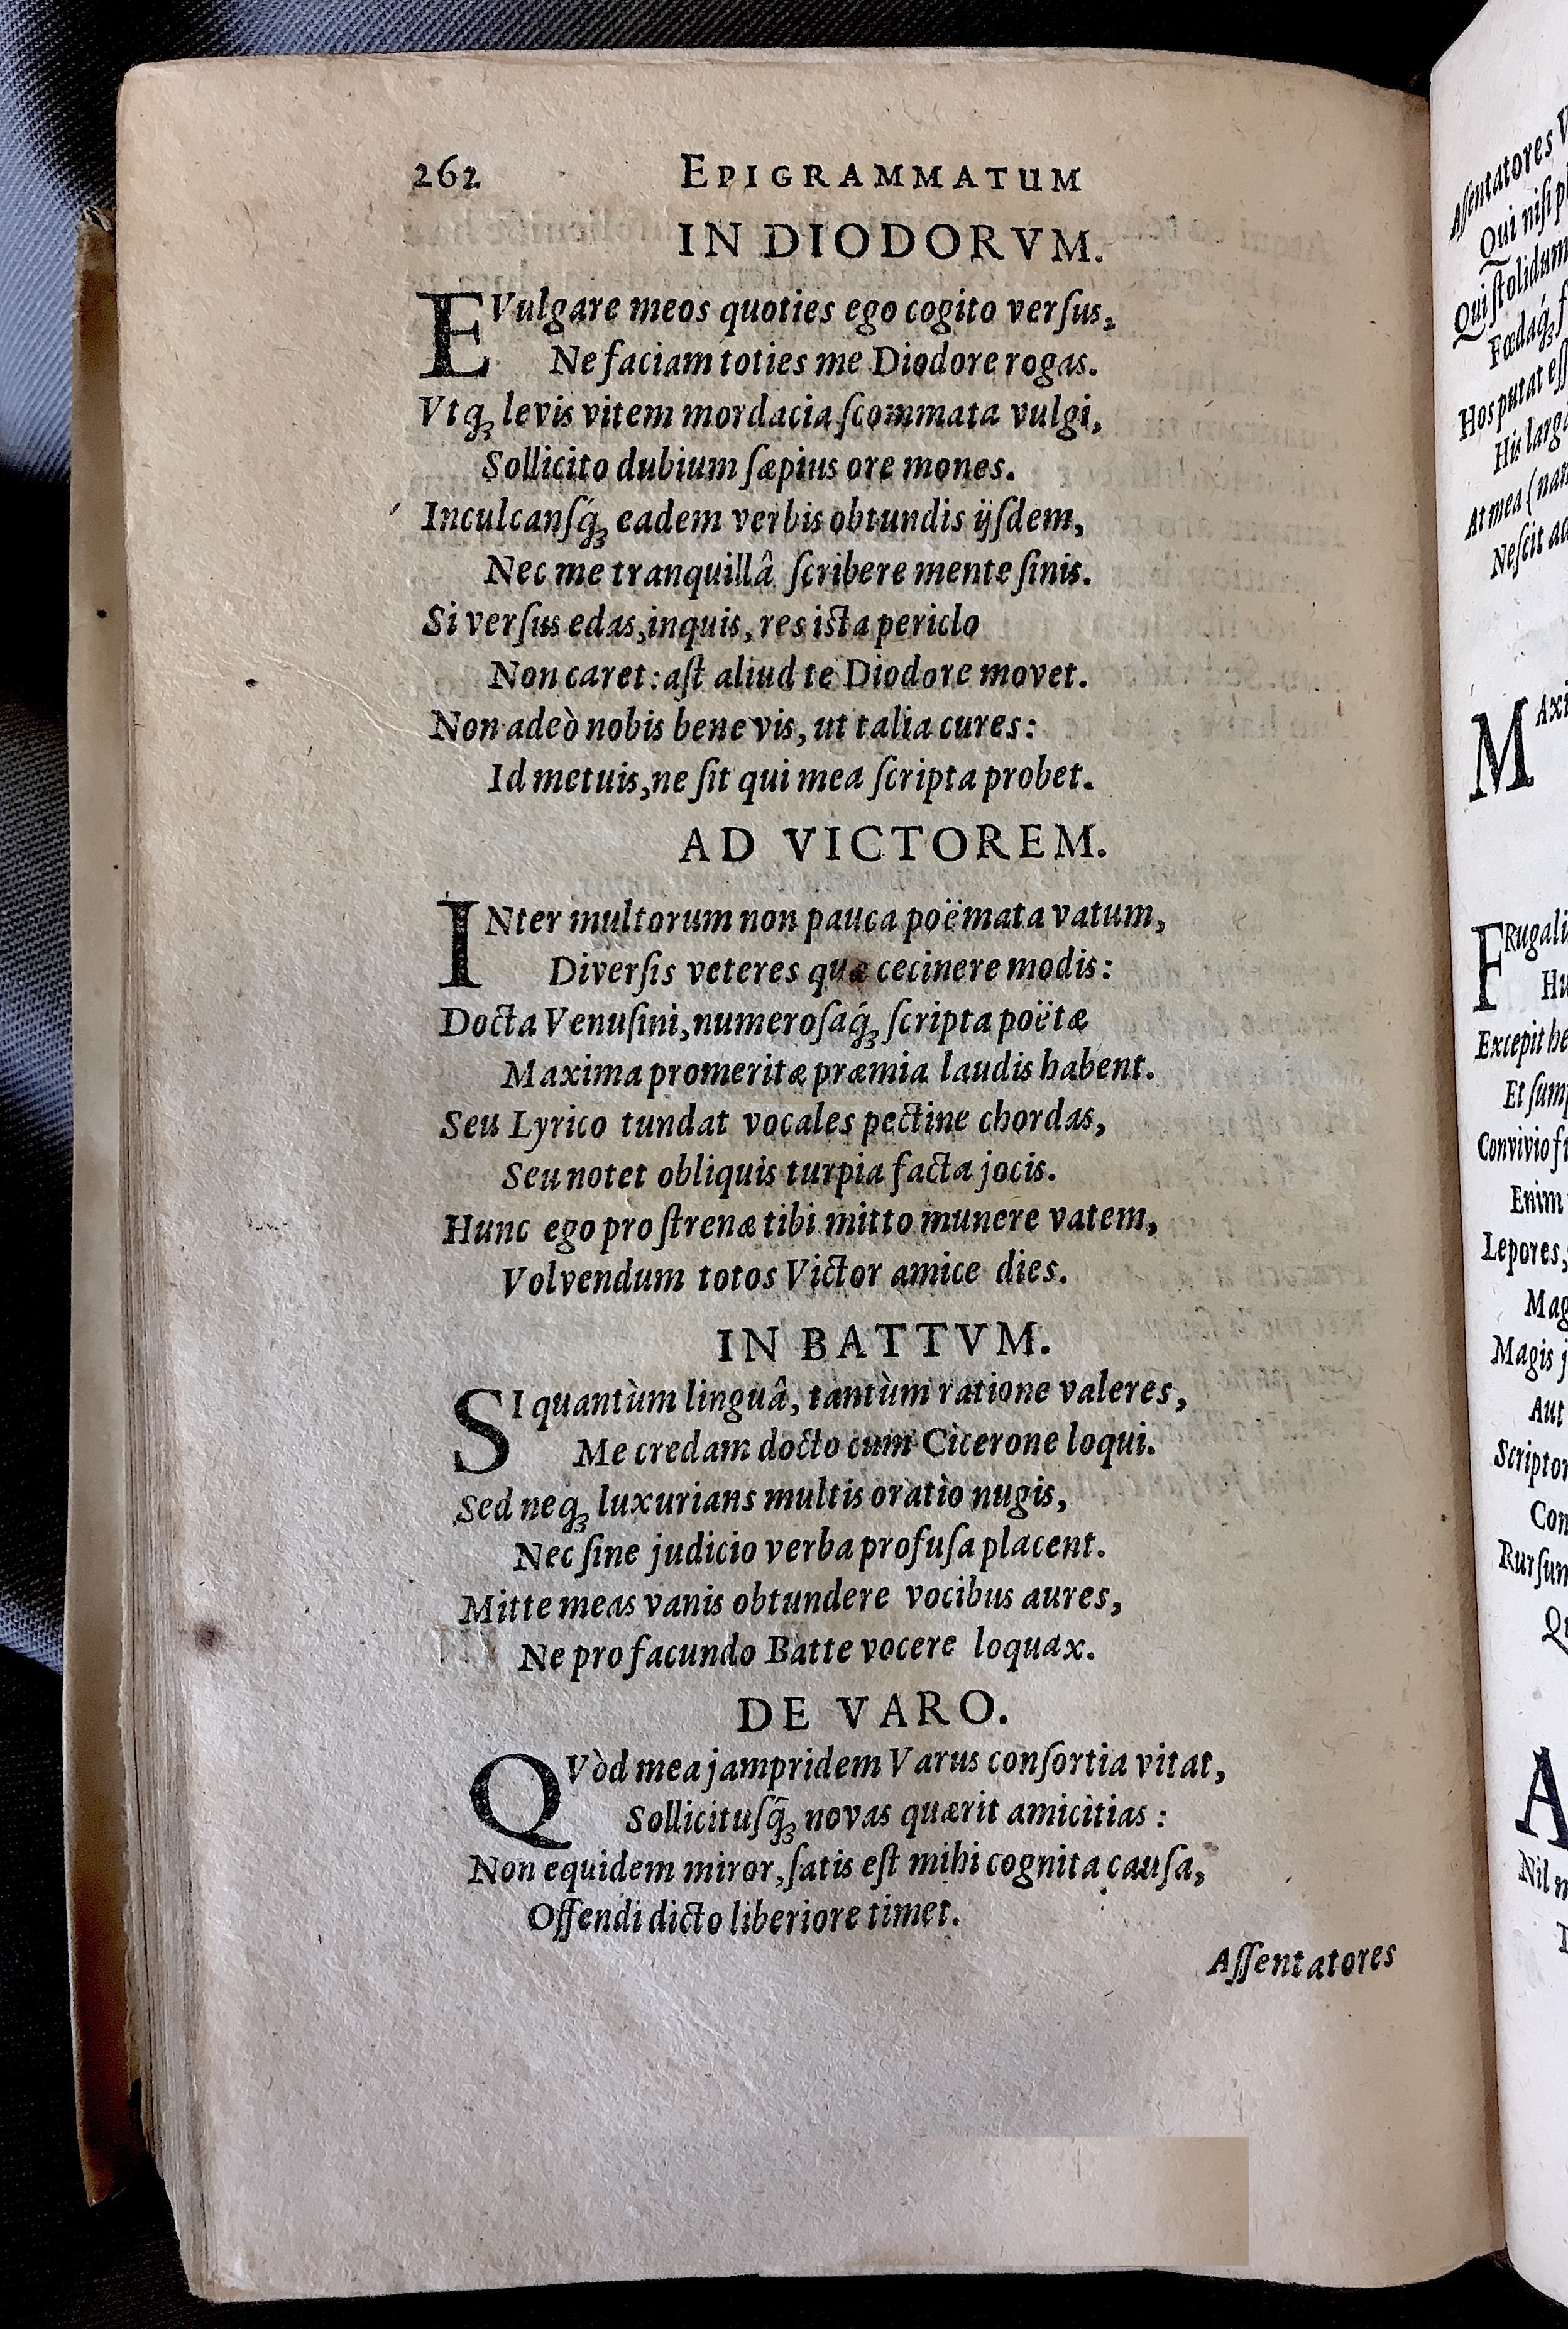 262 EPIGRAMMATUM
IN DIODORVM.
EVulgare meos quoties ego cogito verſus,
Ne faciam toties me Diodore rogas.
Vtq́ʒ levis vitem mordacia ſcommata vulgi,
Sollicito dubium ſæpius ore mones.
Inculcanſq́ʒ eadem verbis obtundis ijſdem,
Nec me tranquillâ ſcribere mente ſinis.
Si verſus edas, inquis, res iſta periclo
Non caret: aſt aliud te Diodore movet.
Non adeò nobis bene vis, ut talia cures:
Id metuis, ne ſit qui mea ſcripta probet.
AD VICTOREM.
INter multorum non pauca poëmata vatum,
Diverſis veteres quæ cecinere modis:
Docta Venuſini, numeroſaq́ʒ ſcripta poëtæ
Maxima promeritæ præmia laudis habent.
Seu Lyrico tundat vocales pectine chordas,
Seu notet obliquis turpia facta jocis.
Hunc ego pro ſtrenæ tibi mitto munere vatem,
Volvendum totos Victor amice dies.
IN BATTVM.
SI quantùm linguâ, tantùm ratione valeres,
Me credam docto cum Cicerone loqui.
Sed neqʒ luxurians multis oratio nugis,
Nec ſine judicio verba profuſa placent.
Mitte meas vanis obtundere vocibus aures,
Ne pro facundo Batte vocere loquax.
DE VARO.
QVòd mea jampridem Varus conſortia vitat,
Sollicituſq́ʒ novas quærit amicitias:
Non equidem miror, ſatis eſt mihi cognita cauſa,
Offendi dicto liberiore timet.
Aſſentatores
Aſſentatores
Qui niſi
Qui ſtolidum
Fœdaq́ʒ
Hos putat
His
At mea (nam
Neſcit
M
FRugali
Excepit
Et
Convivio
Enim
Lepores,
Magis
Aut
Rurſum
A
Nil